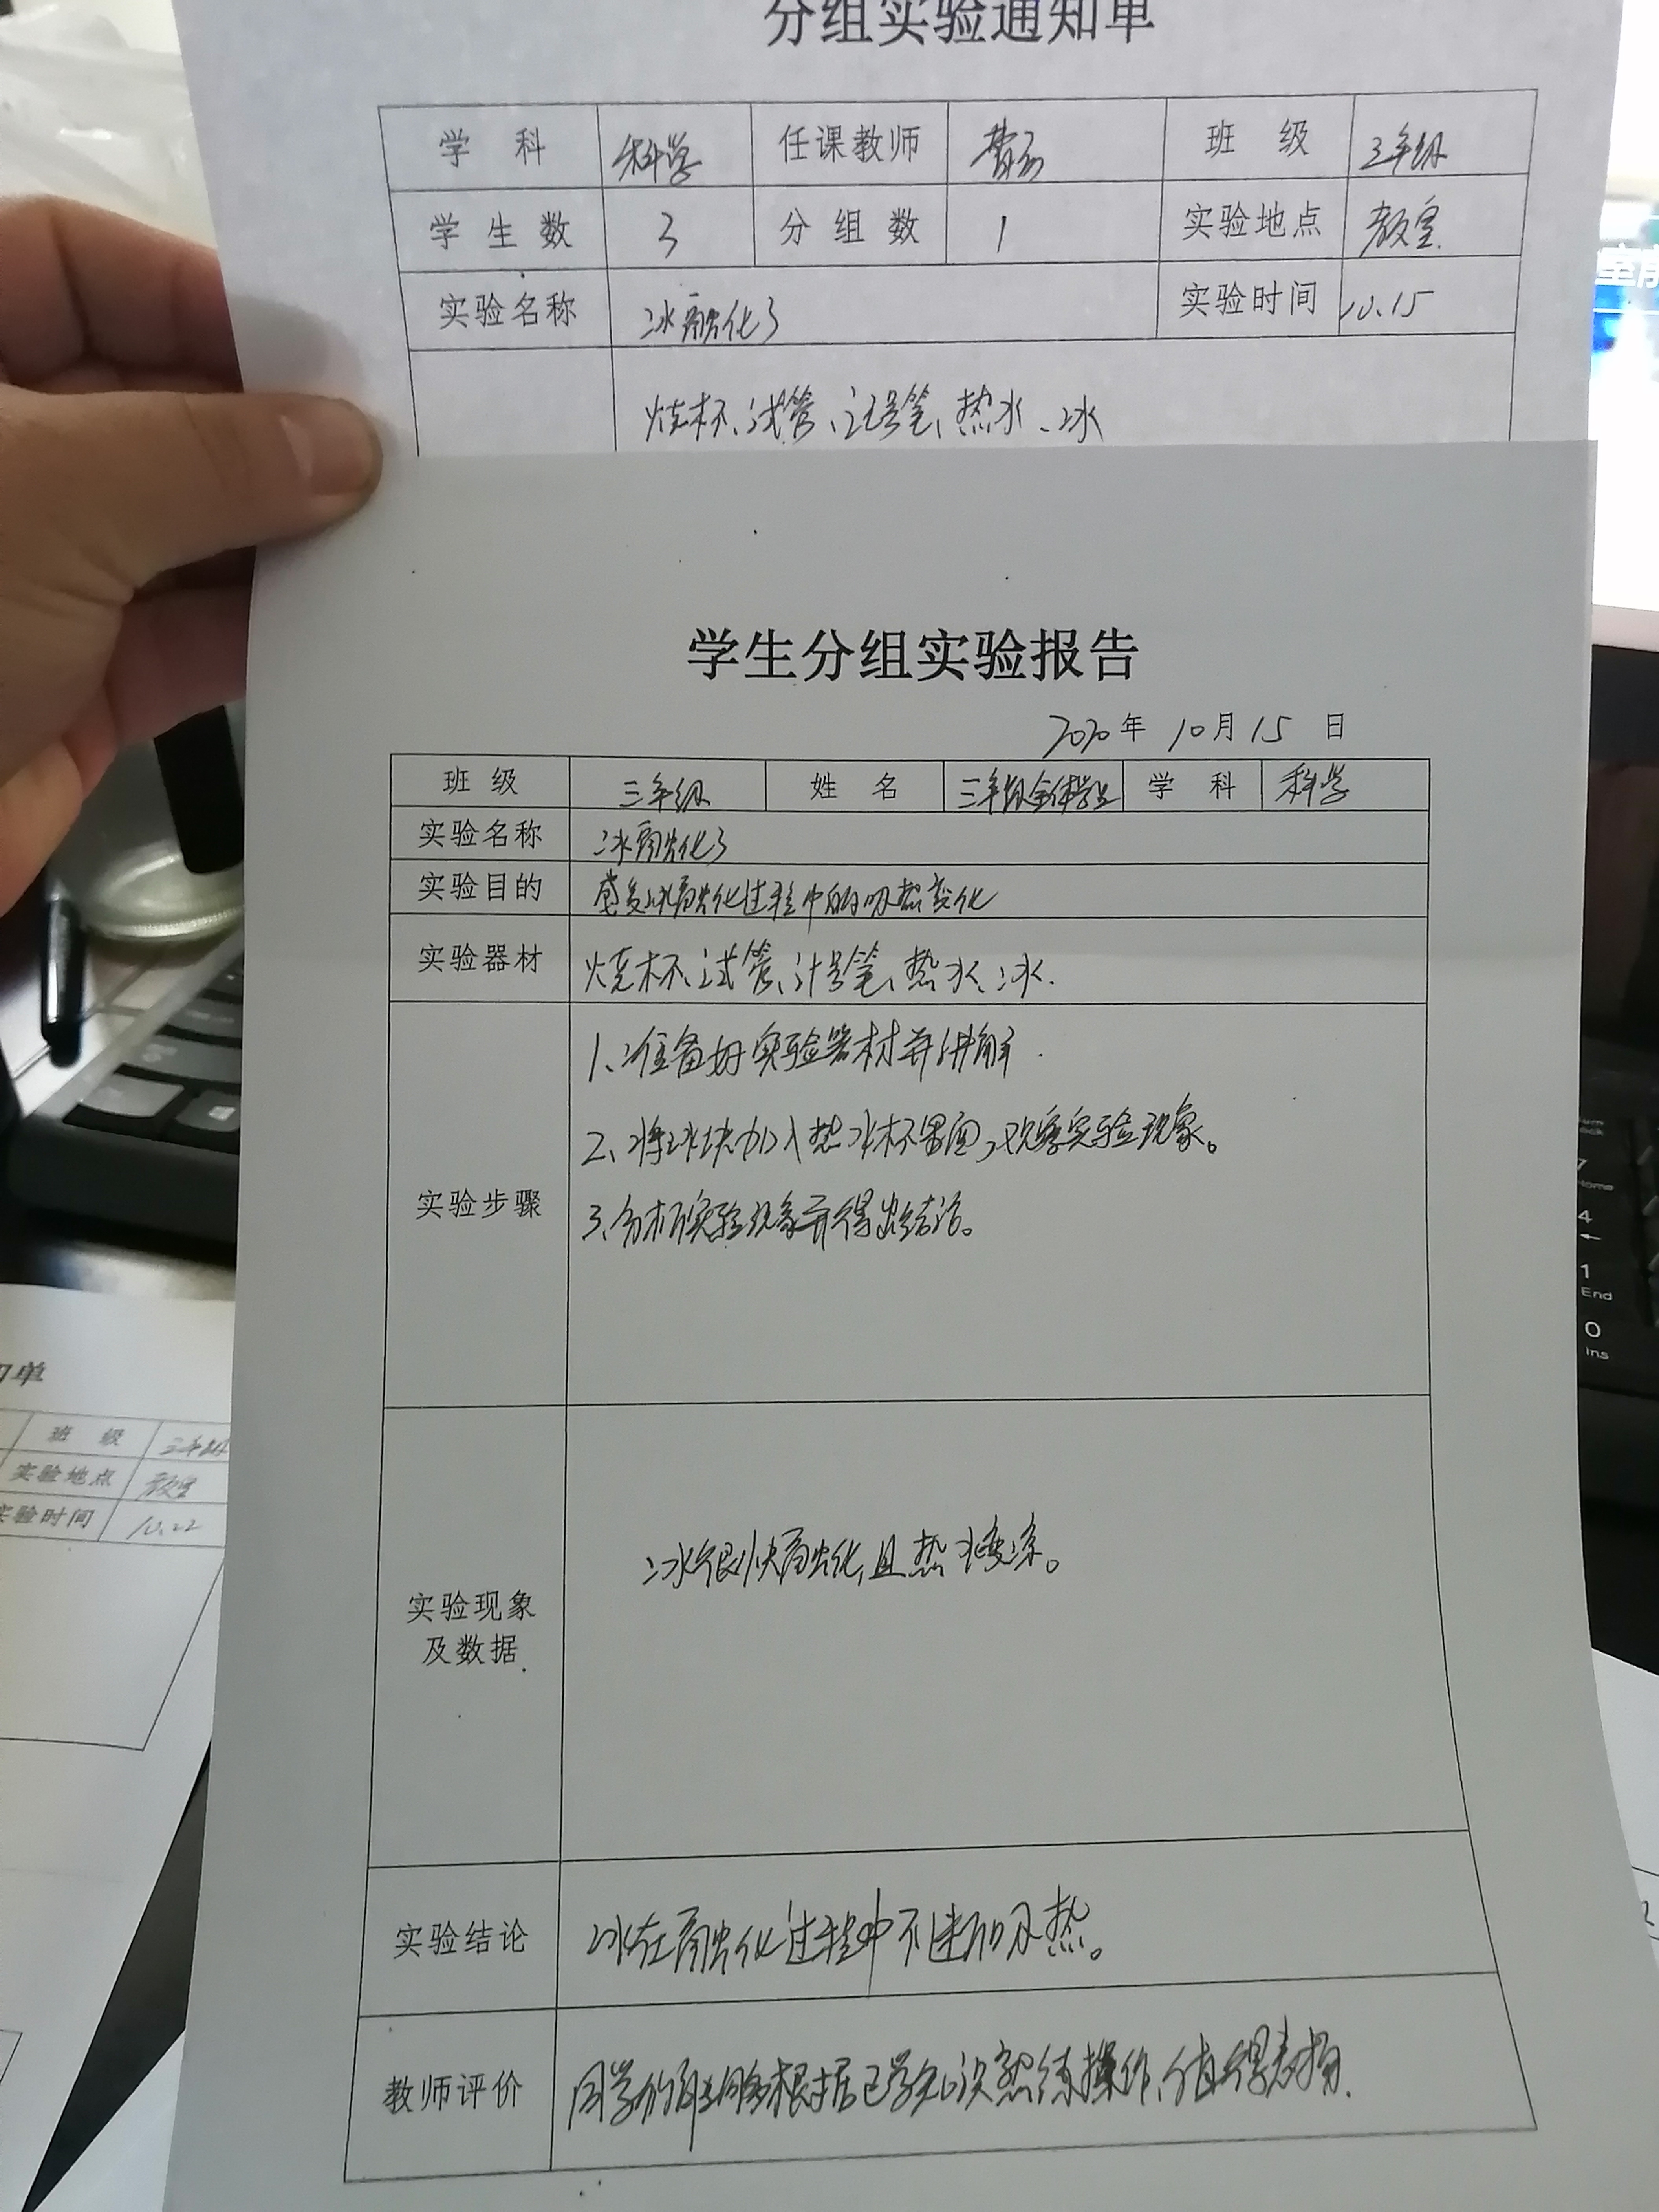 分组实验通知单
学 科 科学 任课教师 班 级 三年级
学 生 数 3 分 组 数 1 实验地点 教室
实验名称 冰融化了 实验时间 10.15
烧杯、试管、记号笔、热水、冰
学生分组实验报告
2020年 10月15 日
班 级 三年级 姓 名 三年级全体学生 学 科 科学
实验名称 冰融化了
实验目的 感受冰融化过程中的吸热变化
实验器材 烧杯、试管、记号笔、热水、冰.
1、准备好实验器材并讲解.
2、将冰块加入热水杯里面,观察实验现象。
实验步骤
3、分析实验现象并得出结论。
冰很快融化,且热水变凉。
实验现象
及数据
实验结论 冰在融化过程中不断吸热。
教师评价 同学们都能够根据已学知识熟练操作,值得表扬.
知单
班 级 三年级
实验地点 教室
实验时间 10.22
Home
4
1
End
0
Ins